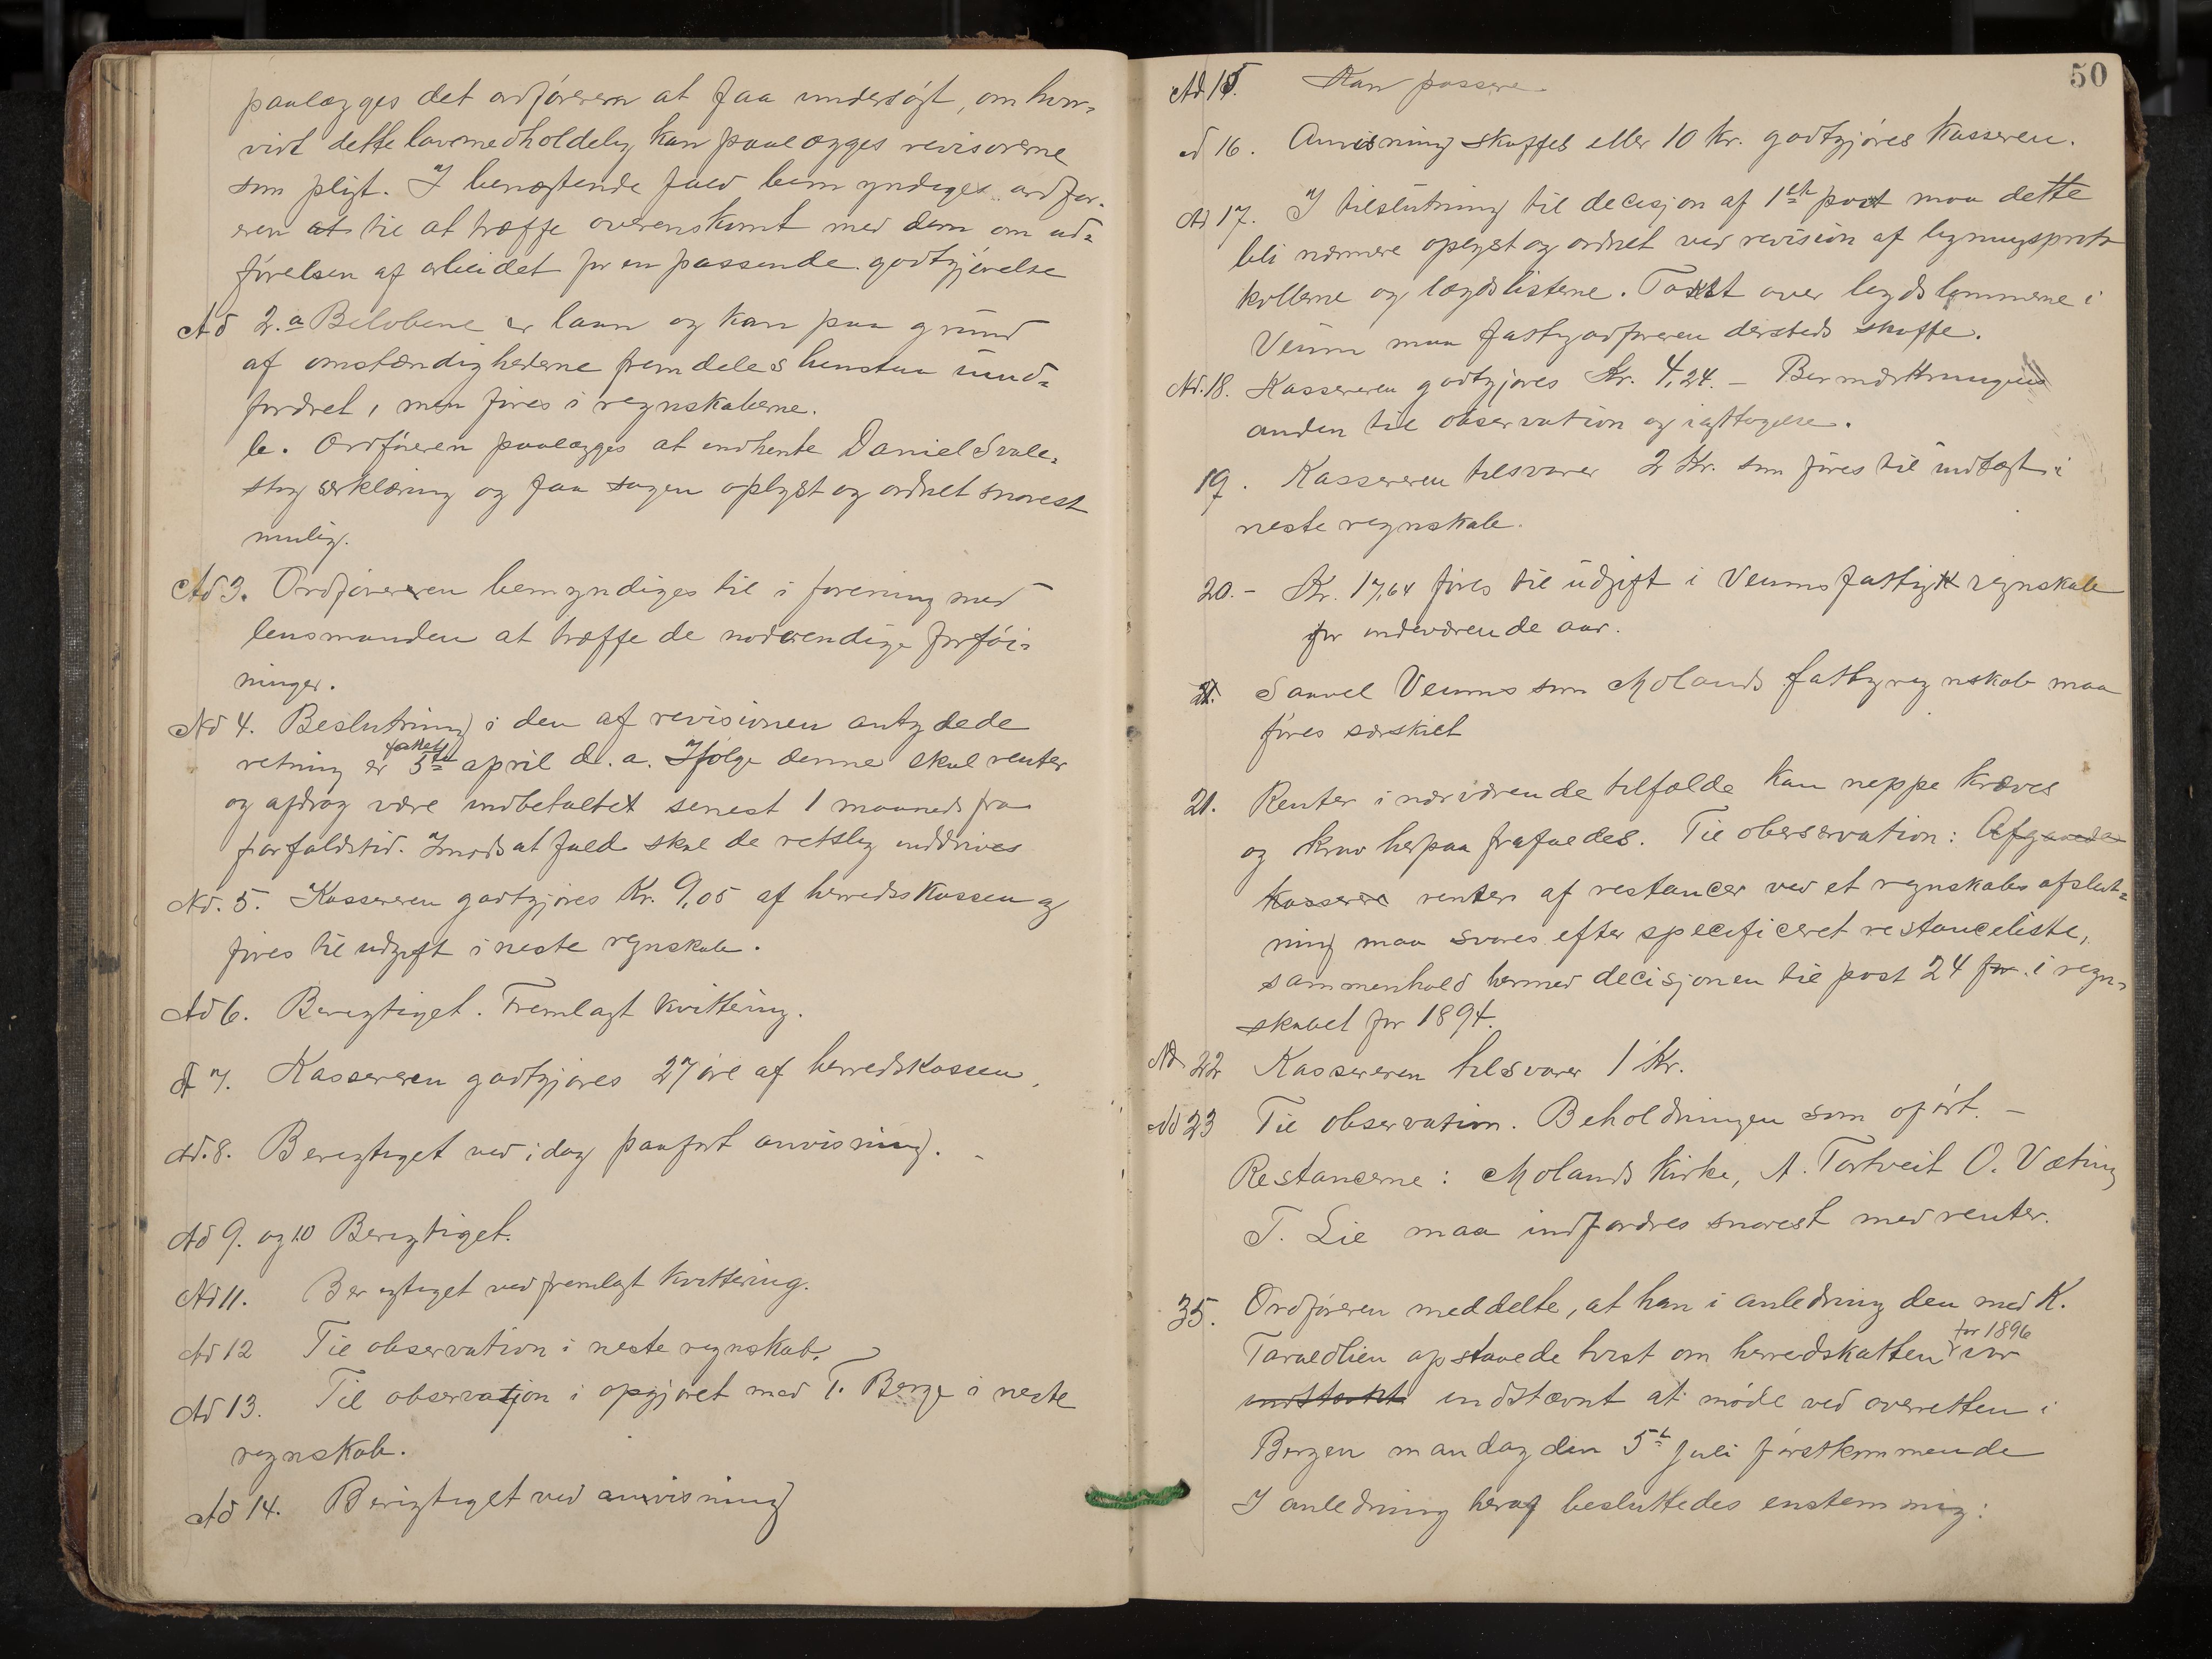 paalægges det ordføreren at faa undersøgt, om hvor-
vidt dette lovmedholdelig kan paalægges revisorerne
som pligt. I benægtende fald bemyndiges ordfør-
eren at til at træffe overenskomst med dem om ud-
førelsen af arbeidet for en passende godtgjørelse
Ad 2. a Beløbene er laan og kan paa grund
af omstændighederne fremdeles henstaa uind-
fordret, men føres i regnskaberne.
b. Ordføreren paalægges at indhente Daniel Svale-
stog erklæring og faa sagen oplyst og ordnet snarest
mulig.
Ad 3. Ordføreren bemyndiges til i forening med
lensmanden at træffe de nødvendige forføi-
ninger.
Ad 4. Beslutning i den af revisionen antydede
retning er fattet 5te april d. a. Ifølge denne skal renter
og afdrag være indbetaltet senest 1 maaned fra
forfaldstid. Imodsat fald skal de retslig inddrives
Ad. 5. Kassereren godtgjøres Kr. 9,05 af herredskassen og
føres til udgift i neste regnskab.
Ad 6. Berigtiget. Fremlagt kvittering.
Ad 7. Kassereren godtgjøres 27 øre af herredskassen.
Ad. 8. Berigtiget ved idag paaført anvisning. -
Ad 9. og 10 Berigtiget.
Ad 11. Berigtiget ved fremlagt kvittering.
Ad 12 Til observation i neste regnskab.
Ad 13. Til observasjon i opgjøret med T. Berge i neste
regnskab.
Ad 14. Berigtiget ved anvisning
50
Ad 15. Kan passere.
Ad 16. Anvisning skaffes eller 10 Kr. godtgjøres Kasseren.
Ad 17. I tilslutning til decisjon af 1ste post maa dette
bli nærmere oplyst og ordnet ved revision af ligningsproto
kollerne og lægdslisterne. Takst over lægdslemmerne i
Veum maa fattigordføreren dersteds skaffe.
Ad. 18. Kassereren godtgjøres Kr. 4,24. - Bermærkningens
anden til observation og iagttagelse.
19. Kassereren tilsvarer 2 Kr. som føres til indtægt i
neste regnskab.
20. - Kr. 17,64 føres til udgift i Veums fattig regnskab
for indeværende aar.
21. Saavel Veums som Molands fattigregnskab maa
føres særskilt
21. Renter i nærværende tilfælde kan neppe kræves
og krav herpaa frafaldes. Til oberservation: Afgaaede
kasserer renter af restancer ved et regnskabs afslut-
ning maa svares efter specificeret restanceliste,
sammenhold hermed decisjonen til post 24 for i regn-
skabet for 1894.
Ad 22 Kassereren tilsvarer 1 Kr.
Ad 23 Til observation. Beholdningen som opført. -
Restancerne: Molands kirke, A. Tortveit O. Væting
T. Lie maa indfordres snarest med renter.
35. Ordføreren meddelte, at han i anledning den med K.
Taraldlien opstaaede tvist om herredskatten for 1896 var
indstævnt at møde ved overretten i
Bergen mandag den 5te juli førstkommende
I anledning heraf besluttedes enstemmig: